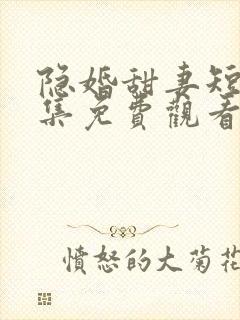 隐婚甜妻短
集免費觀看
憤怒的大菊花